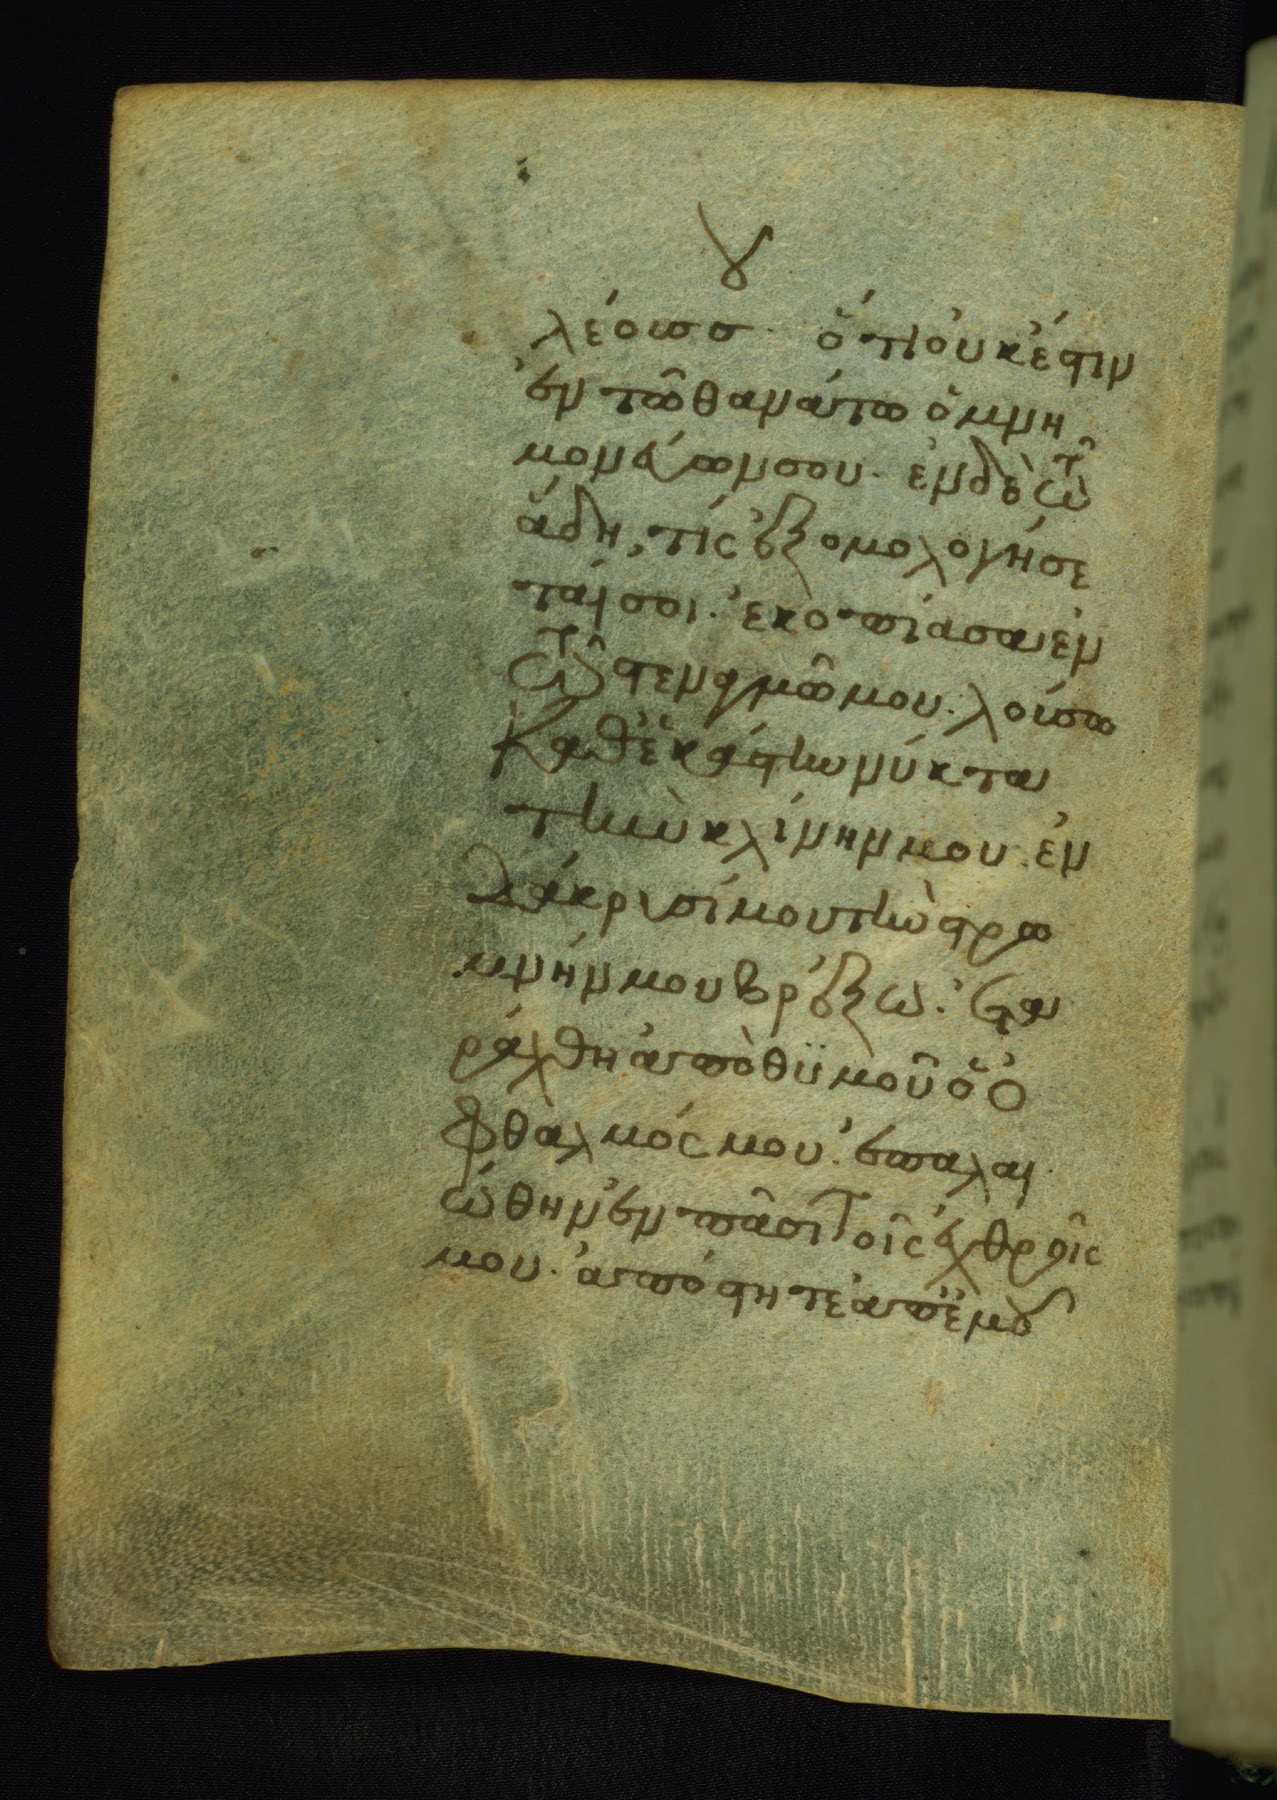 γ
λέουσσ· ὅτι οὐκ ἔστιν
ἐν τῶ θανάτω ὁ μνη
μονεύων σου· ἐν δὲ τῶ
ἄδη, τίς ἐξομολογήσε
ταί σοι· ἐκοπίασα ἐν
τῶ στεναγμῶ μου· λούσω
καθ ἑκάστην νύκτα
τὴν κλίνην μου· ἐν
δάκρισί μου τὴν στρω
μνήν μου βρέξω· ἐτα
ράχθη ἀπὸ θϋμοῦ ὁ ὀ
φθαλμός μου· ἐπαλαι
ώθην ἐν πᾶσι τοῖς ἐχθροῖς
μου· ἀπόστητε ἀπ ἐμοῦ